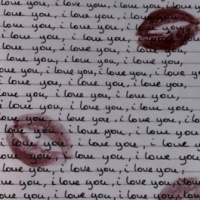 i love you, i love you, i love you,
you, i love you, i love you, i
love you, i love you, i love
i love you, i love you, i love you
you, i love you, i love you, i love
love you, i love you, i love you, i love
you, i love you, i love you, i love
love you, i love you, i love you,
i love you, i love you, i love you,
you, i love you, i love you, i love
love you, i love you, i love you
you, i love you, i love you, i love
i love you, i love you, i love you
love you, i love you, i love you
you, i love you, i love you, i love